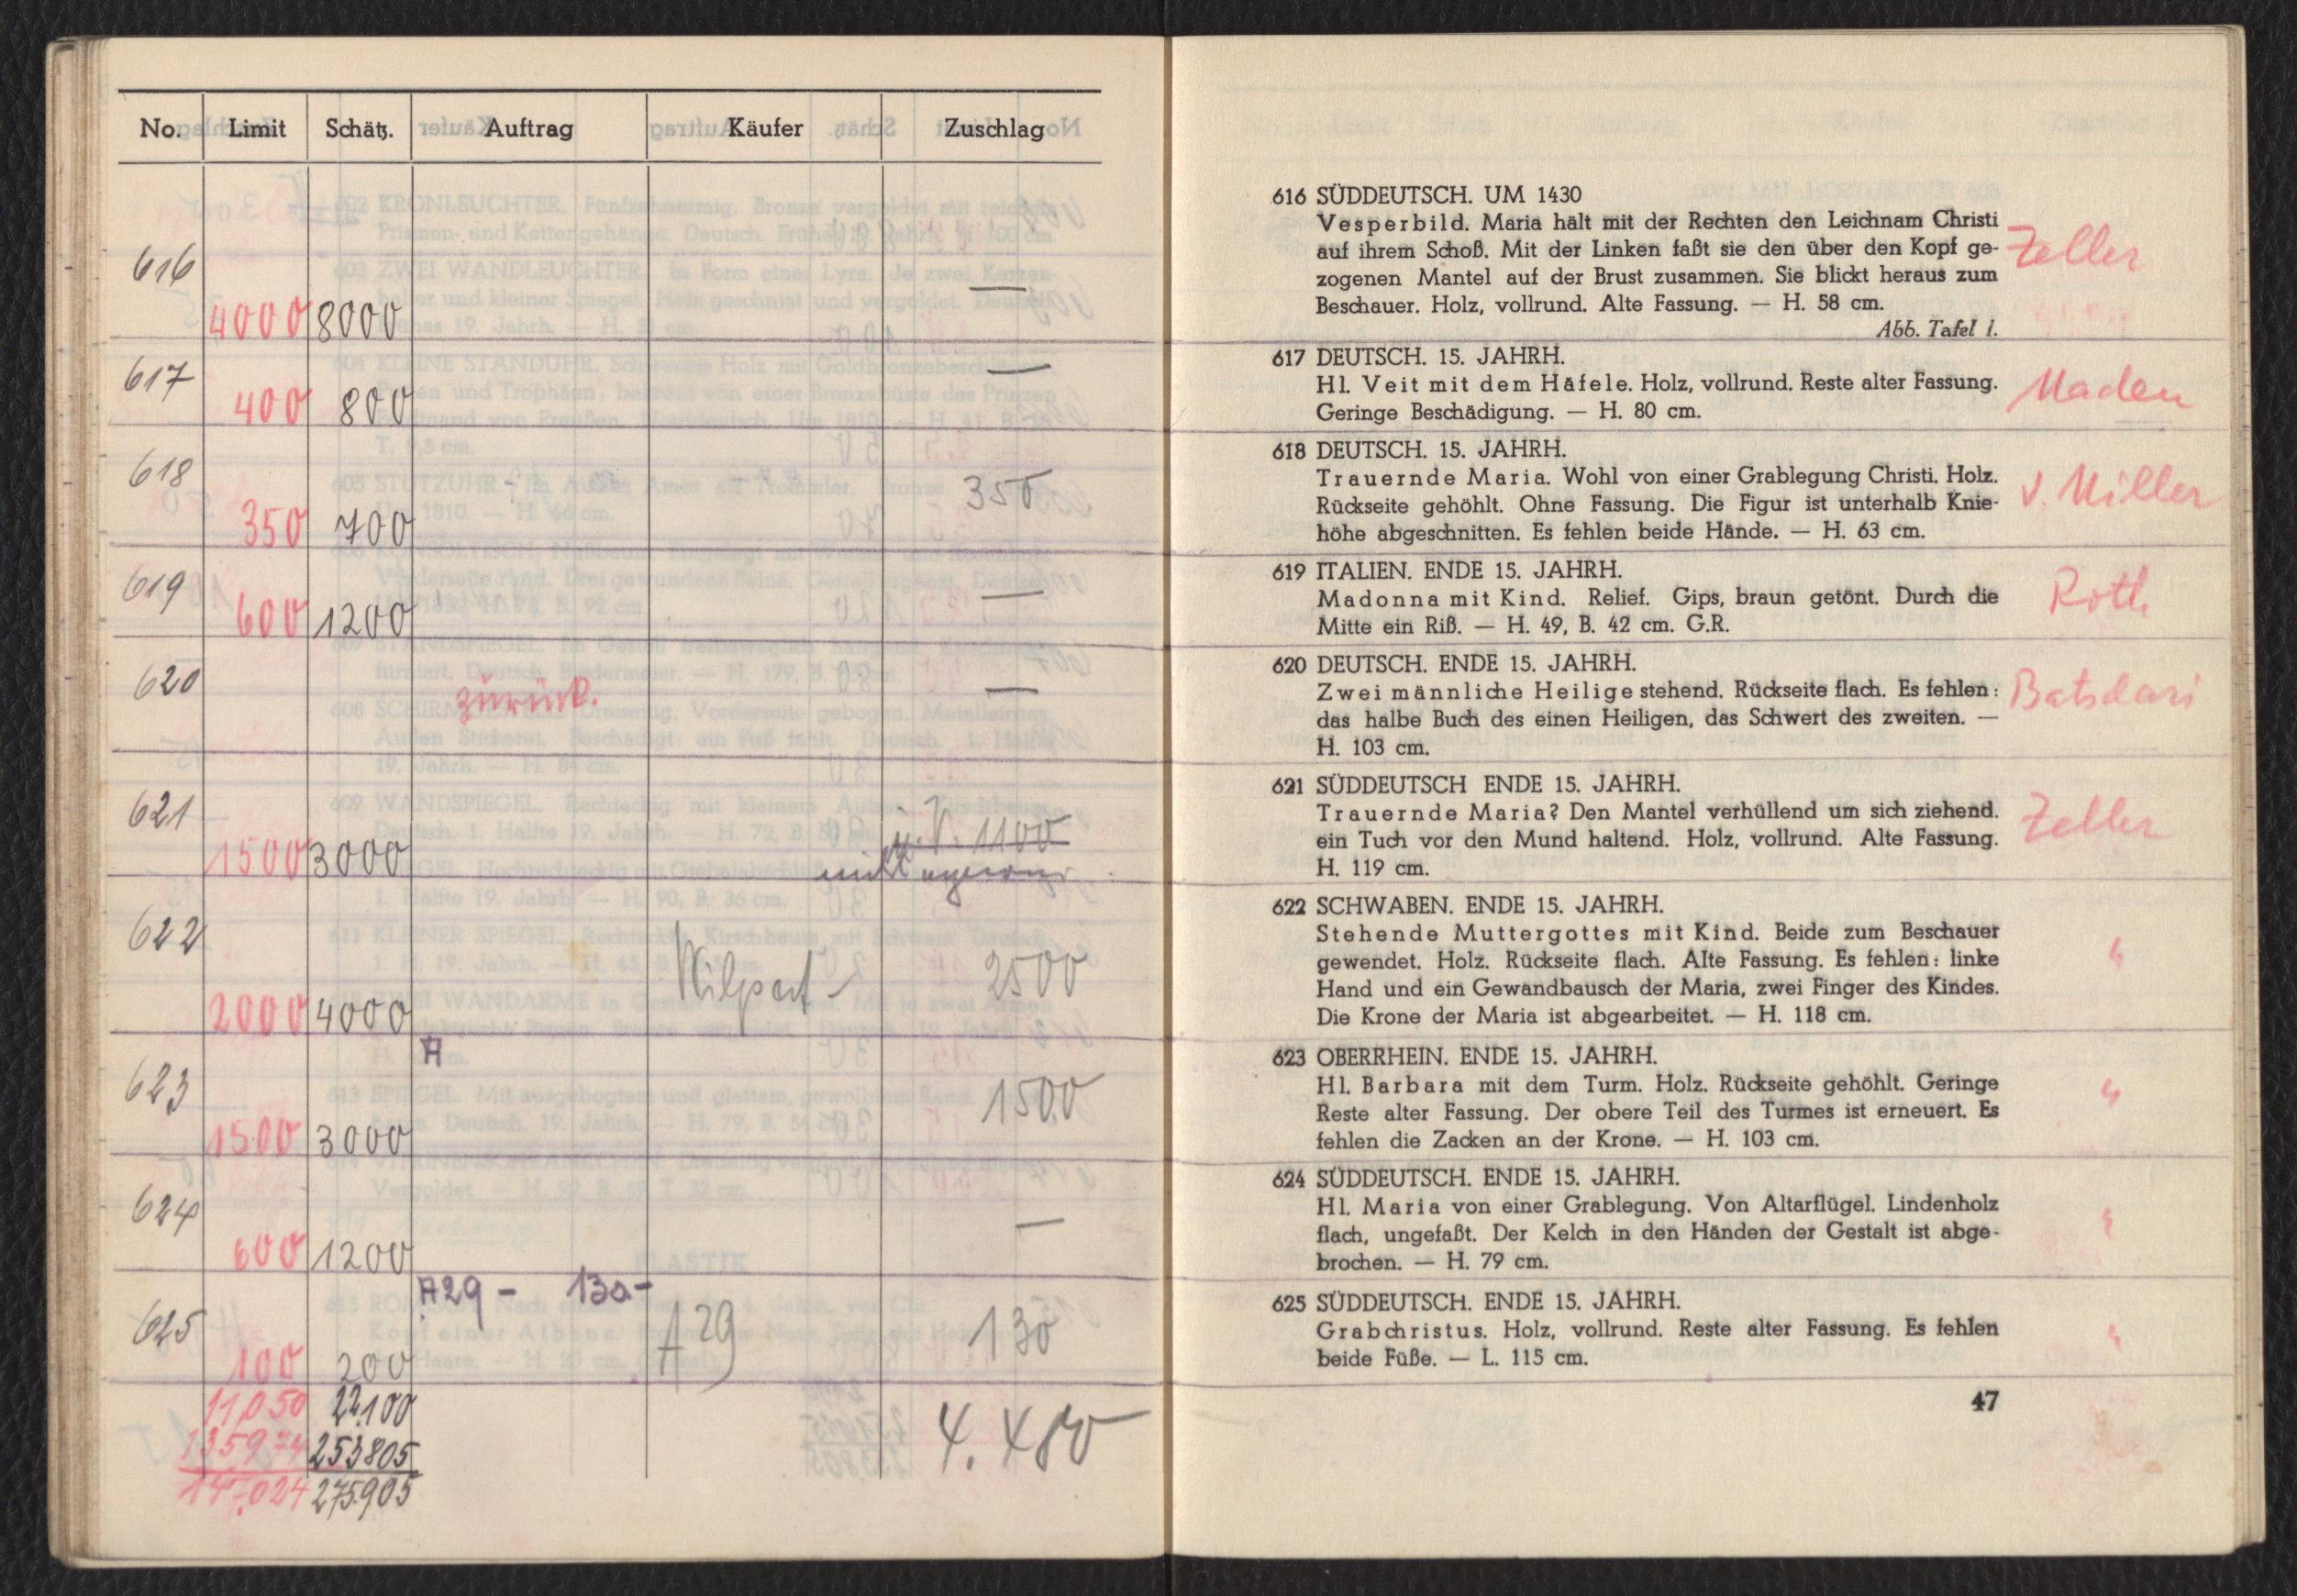 No. Limit Schätz. Auftrag Käufer Zuschlag
616
4000 8000 —
617
400 800 —
618
350 700 350
619
600 1200 —
620
zurück. —
621
1500 3000 1100
622
2000 4000 2500
A
623
1500 3000 1500
624
600 1200 —
A29 - 130-
625
100 200 A 29 130
11,050 22100
135974 253805 4.480
147.024 275905
616 SÜDDEUTSCH. UM 1430
Vesperbild. Maria hält mit der Rechten den Leichnam Christi
auf ihrem Schoß. Mit der Linken faßt sie den über den Kopf ge- Zeller
zogenen Mantel auf der Brust zusammen. Sie blickt heraus zum
Beschauer. Holz, vollrund. Alte Fassung. — H. 58 cm.
Abb. Tafel 1.
617 DEUTSCH. 15. JAHRH.
Hl. Veit mit dem Häfele. Holz, vollrund. Reste alter Fassung. Maden
Geringe Beschädigung. — H. 80 cm.
618 DEUTSCH. 15. JAHRH.
Trauernde Maria. Wohl von einer Grablegung Christi. Holz.
Rückseite gehöhlt. Ohne Fassung. Die Figur ist unterhalb Knie- v. Miller
höhe abgeschnitten. Es fehlen beide Hände. — H. 63 cm.
619 ITALIEN. ENDE 15. JAHRH.
Madonna mit Kind. Relief. Gips, braun getönt. Durch die Roth
Mitte ein Riß. — H. 49, B. 42 cm. G.R.
620 DEUTSCH. ENDE 15. JAHRH.
Zwei männliche Heilige stehend. Rückseite flach. Es fehlen: Batsdari
das halbe Buch des einen Heiligen, das Schwert des zweiten. —
H. 103 cm.
621 SÜDDEUTSCH ENDE 15. JAHRH.
Trauernde Maria? Den Mantel verhüllend um sich ziehend. Zeller
ein Tuch vor den Mund haltend. Holz, vollrund. Alte Fassung.
H. 119 cm.
622 SCHWABEN. ENDE 15. JAHRH.
Stehende Muttergottes mit Kind. Beide zum Beschauer
gewendet. Holz. Rückseite flach. Alte Fassung. Es fehlen: linke "
Hand und ein Gewandbausch der Maria, zwei Finger des Kindes.
Die Krone der Maria ist abgearbeitet. — H. 118 cm.
623 OBERRHEIN. ENDE 15. JAHRH.
Hl. Barbara mit dem Turm. Holz. Rückseite gehöhlt. Geringe "
Reste alter Fassung. Der obere Teil des Turmes ist erneuert. Es
fehlen die Zacken an der Krone. — H. 103 cm.
624 SÜDDEUTSCH. ENDE 15. JAHRH.
Hl. Maria von einer Grablegung. Von Altarflügel. Lindenholz "
flach, ungefaßt. Der Kelch in den Händen der Gestalt ist abge-
brochen. — H. 79 cm.
625 SÜDDEUTSCH. ENDE 15. JAHRH.
Grabchristus. Holz, vollrund. Reste alter Fassung. Es fehlen "
beide Füße. — L. 115 cm.
47